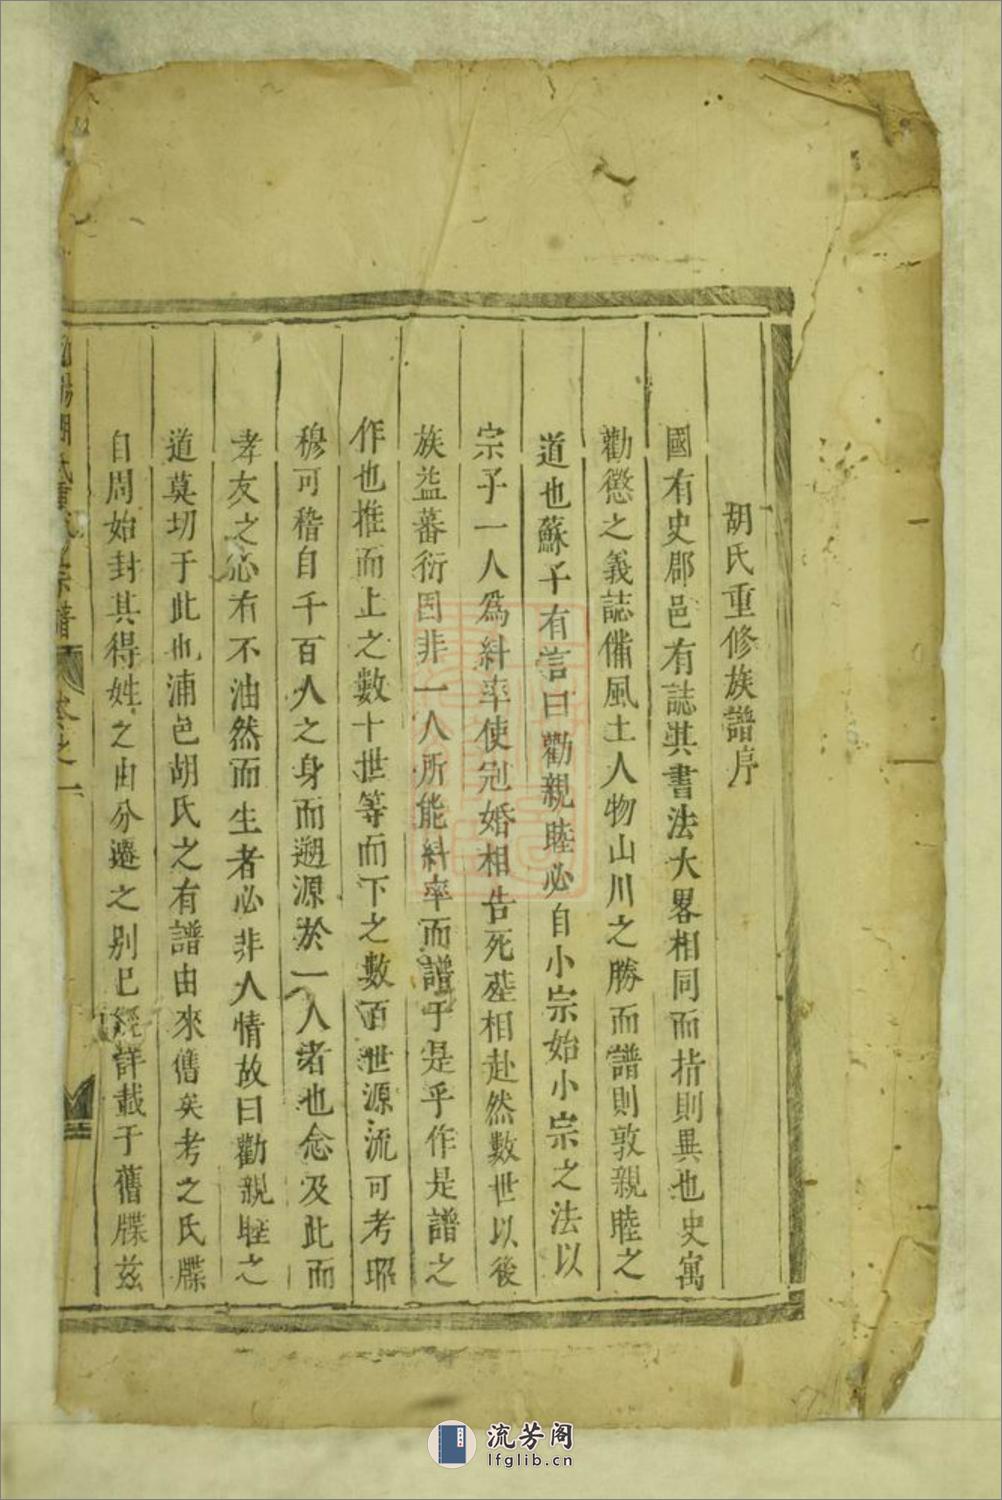 胡氏重修族譜序
國有史郡邑有誌其書法大畧相同而指則異也史寓
勸懲之義誌備風土人物山川之勝而譜則敦親睦之
道也蘇子有言曰勸親睦必自小宗始小宗之法以
宗子一人爲糾率使冠婚相告死塟相赴然數世以後
族益蕃衍固非一人所能糾率而譜于是乎作是譜之
作也推而上之數十世等而下之數百世源流可考昭
穆可稽自千百人之身而遡源於一人者也念及此而
孝友之心有不油然而生者必非人情故曰勸親睦之
道莫切于此也浦邑胡氏之有譜由來舊矣考之氏牒
自周始封其得姓之由分遷之别已經詳載于舊牒兹
陽胡氏重宗譜
卷之一
流芳阁
lfglib.cn